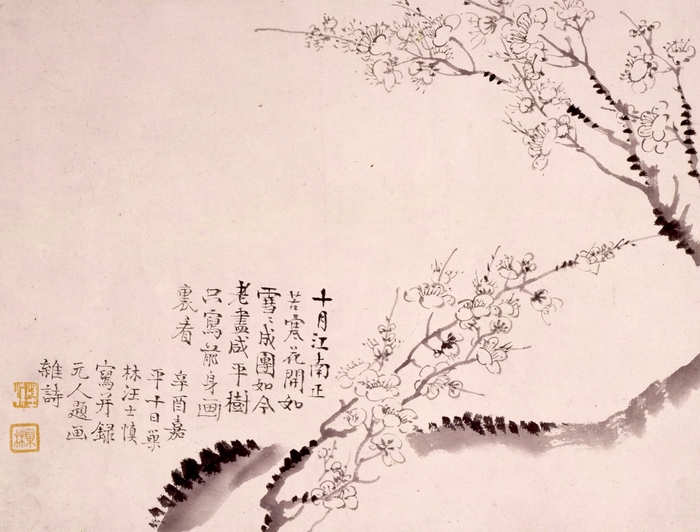 十月江南正
苦寒花開如
雪々成團如今
老盡咸平樹
只寫前身画
裏看
辛酉嘉
平十日巢
林汪士慎
寫并録
元人題画
雜詩